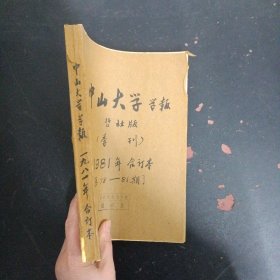 中山大学学报
哲社版
(季刊)
1981年 合订本
[78—81期]
中山大学学报 一九八一年 合订本